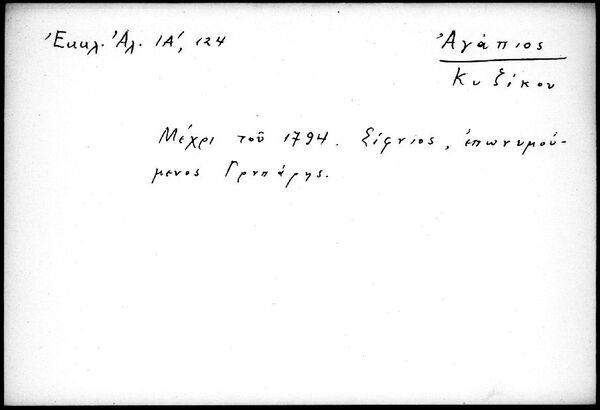 Ἐκκλ. Ἀλ. ΙΑ΄, 124
Ἀγάπιος
Κυζίκου
Μέχρι τοῦ 1794. Σίφνιος, ἐπωνυμού-
μενος Γρυπάρης.